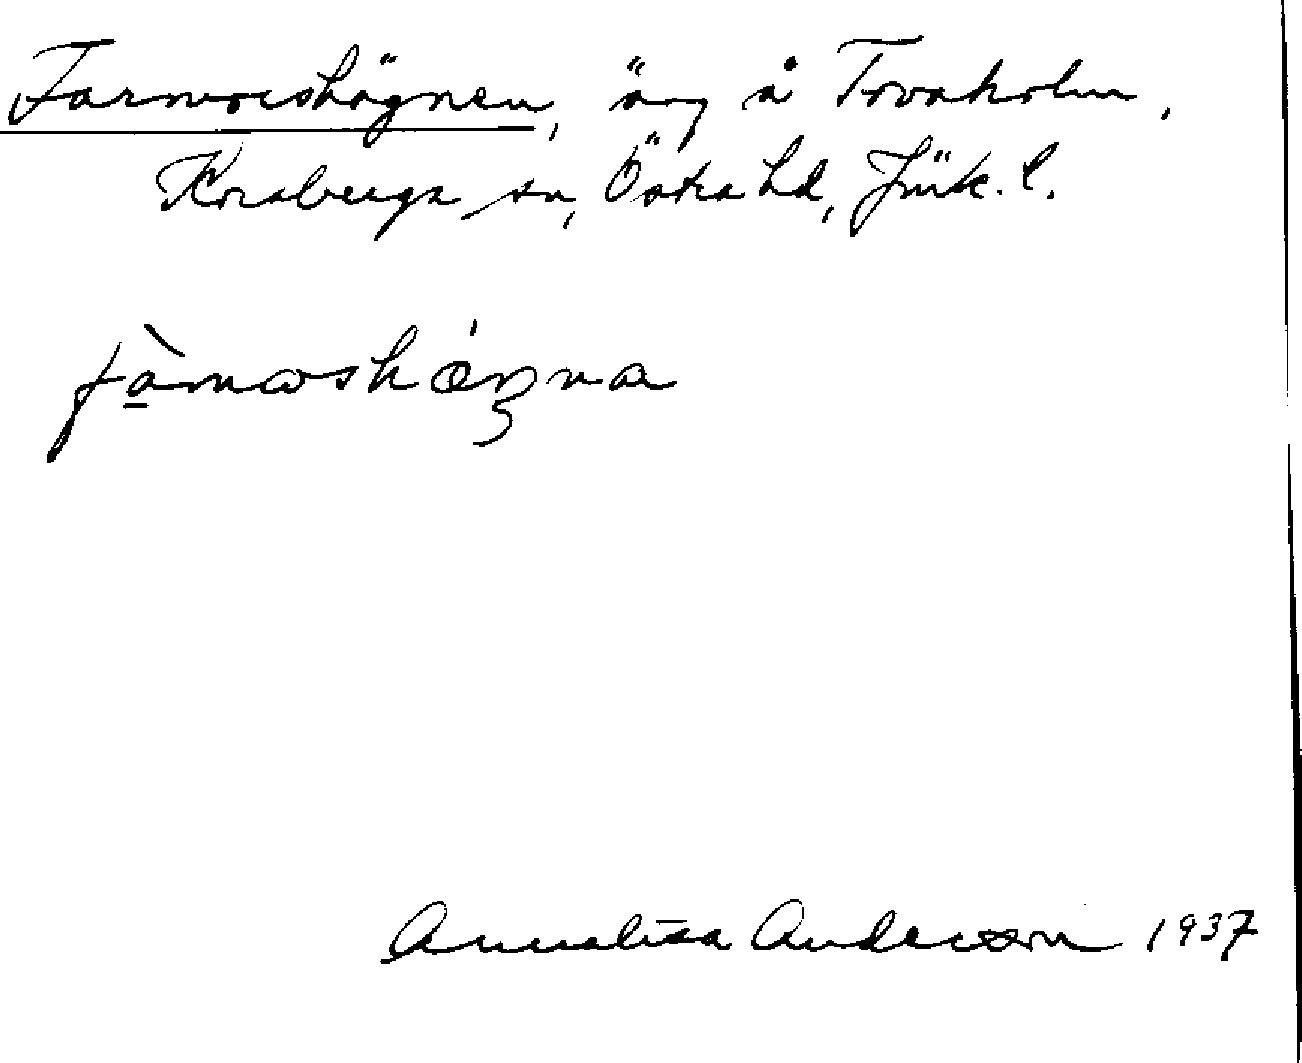 Farmorshägnen, äng å Tovaholm,
Korsberga sn, Östra hd, Jönk. l.
Annalisa Anderson 1937